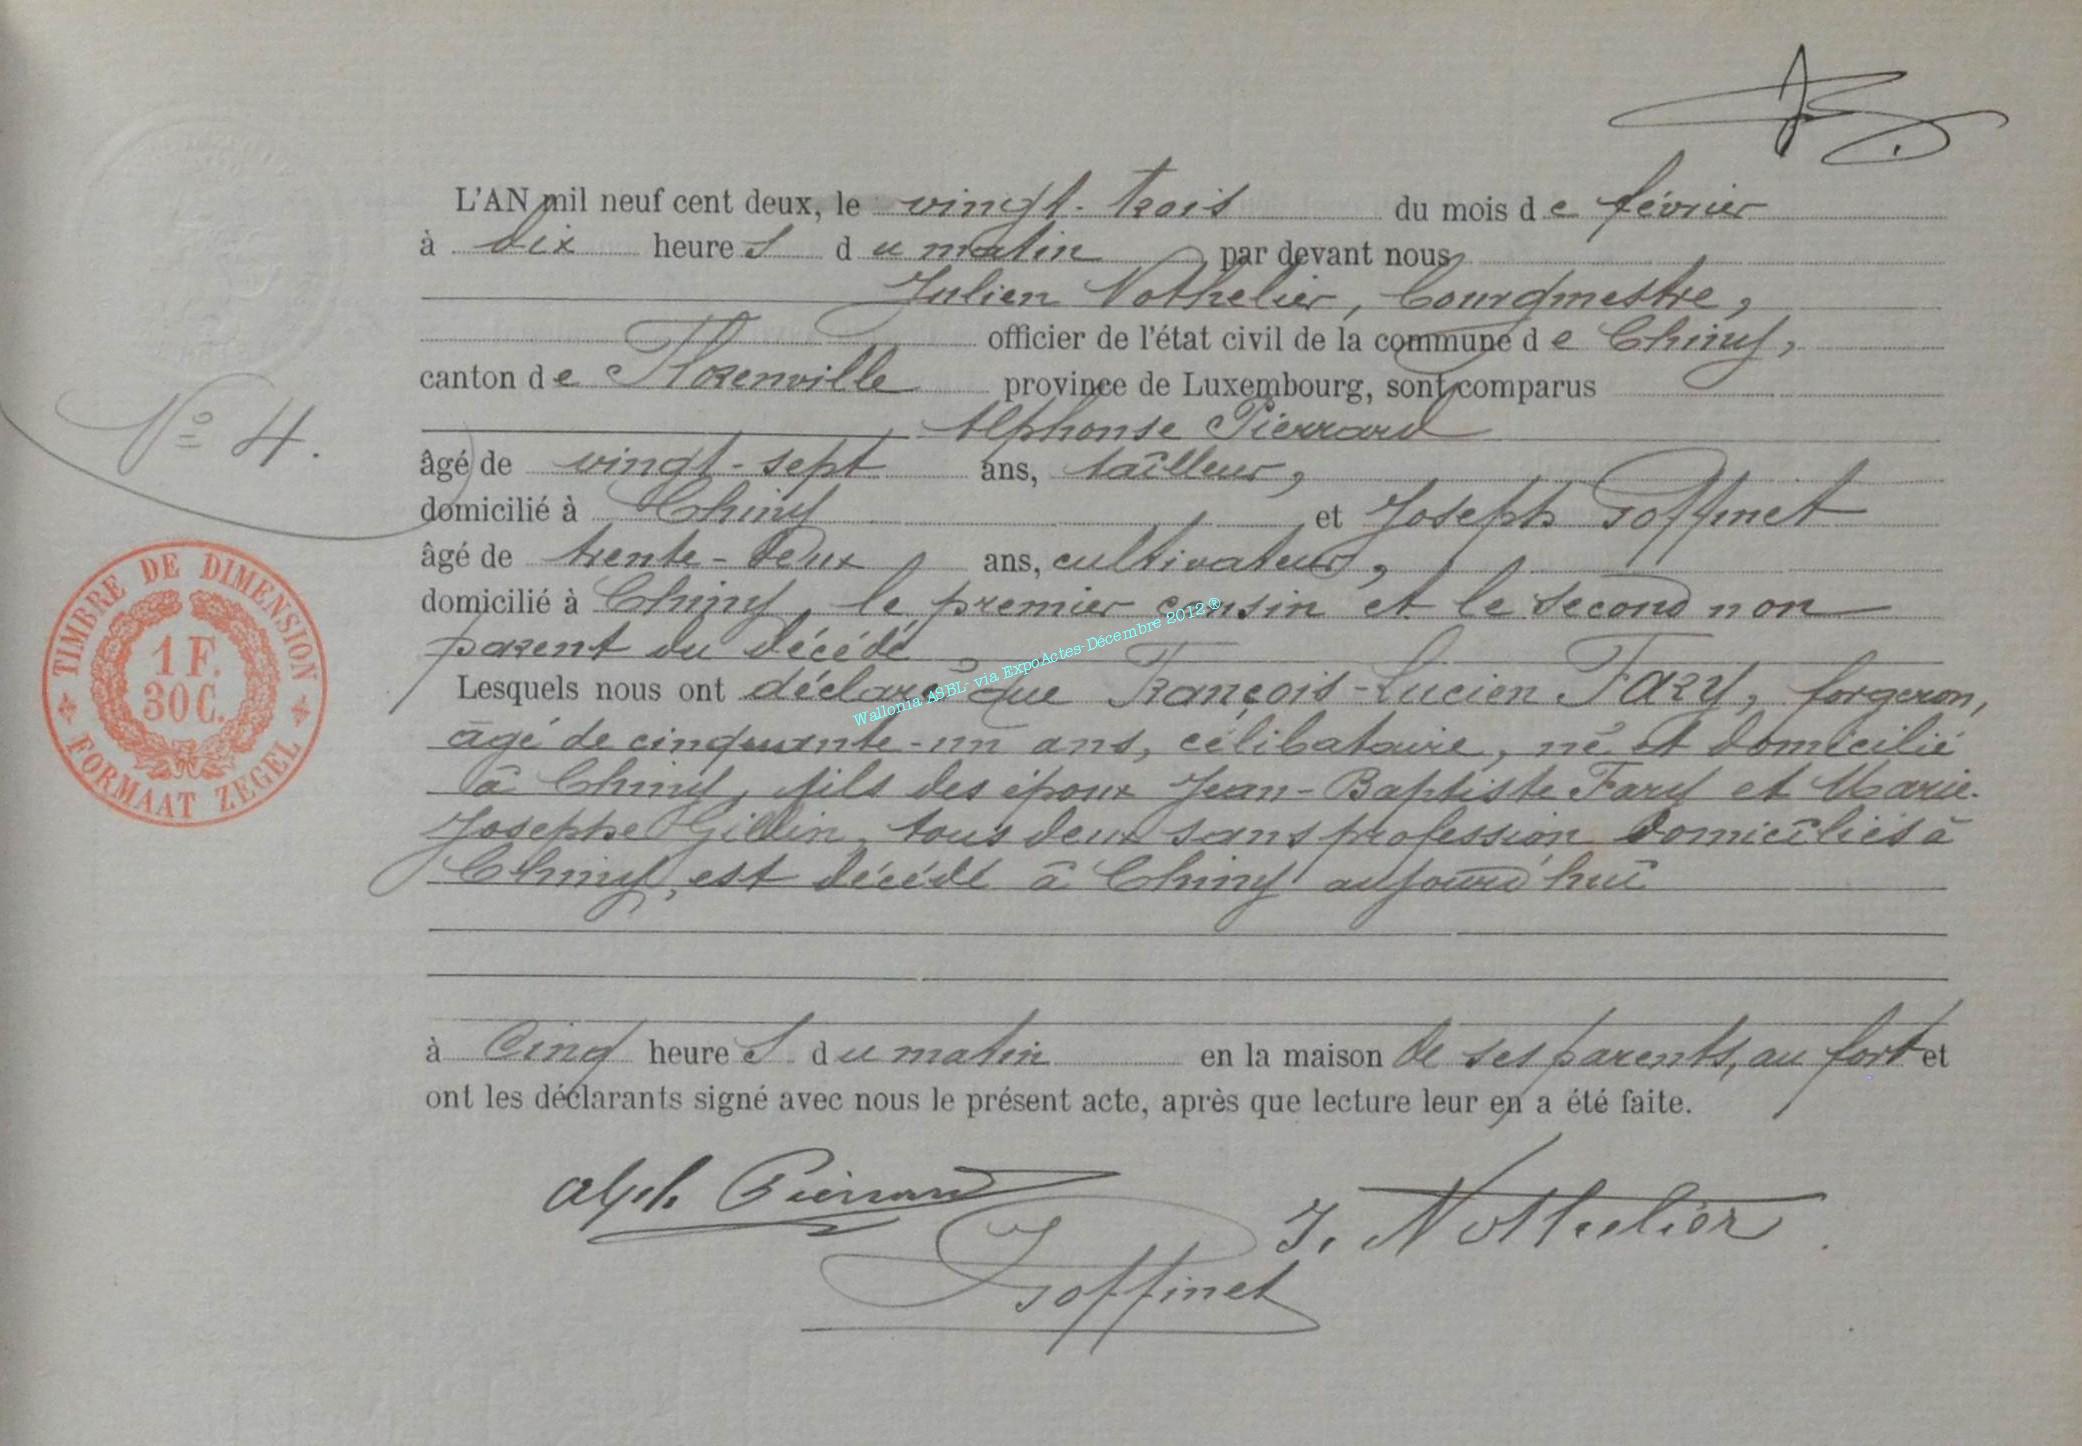 L'AN mil neuf cent deux, le vingt-trois du mois de février
à dix heures du matin par devant nous
Julien Nothelier, bourgmestre,
officier de l'état civil de la commune de Chiny,
canton de Florenville province de Luxembourg, sont comparus
Alphonse Pierrard
âgé de vingt-sept ans, tailleur,
domicilié à Chiny et Joseph Goffinet
âgé de trente-deux ans, cultivateur,
domicilié à Chiny, le premier cousin et le second non
parent du décédé
Lesquels nous ont déclaré que François-Lucien Fary, forgeron,
âgé de cinquante-un ans, célibataire, né et domicilié
à Chiny, fils des époux Jean-Baptiste Fary et Marie-
Josephe Gillin, tous deux sans profession domiciliés à
Chiny, est décédé à Chiny aujourd'hui
à cinq heures du matin en la maison de ses parents, au fort et
ont les déclarants signé avec nous le présent acte, après que lecture leur en a été faite.
Alph. Pierrard
J. Nothelier
Goffinet
No 4.
TIMBRE DE DIMENSION
1 F.
30 C.
FORMAAT ZEGEL
Wallonia ASBL- via ExpoActes-Décembre 2012 ®